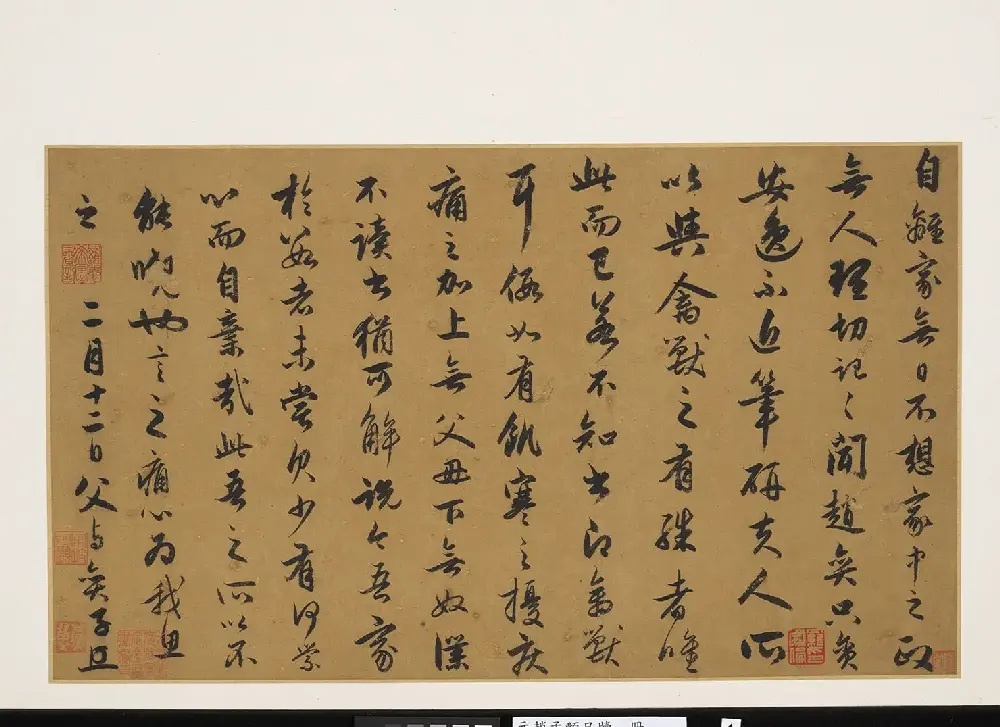 自離家無日不想家中之政
無人理切記〻聞趙奕只貪
安逸不近筆研夫人所
以與禽獸之有殊者唯
此而已若不知書即禽獸
耳倘如有飢寒之擾疾
痛之加上無父母下無奴僕
不讀書猶可解說今吾家
於數者未嘗欠少有何
心而自棄哉此吾之所以不
能
言之痛心為我思
之
二月十二日父与奕子
元趙孟頫尺牘